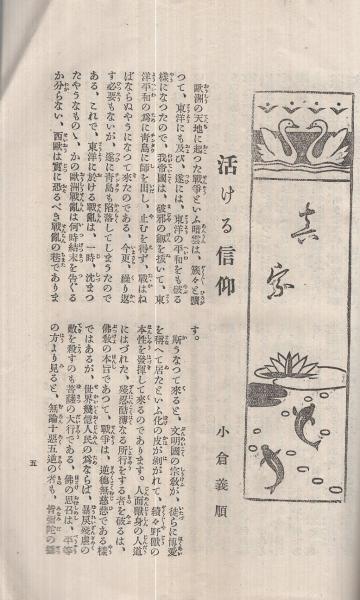 真宗
活ける信仰
小倉義順
歐洲の天地に起つた戰爭といふ暗雲は、簇々と擴
つて、東洋にも及び、遂には、東洋の平和をも破る
樣になつたので、我帝國は、破邪の劍を抜いて、東
洋平和の爲に青島に師を出し、止むを得ず、戰はね
ばならぬやうになつて來たのである。今更、繰り返
す必要もないが、遂に青島も陷落してしまうたので
ある、これで、東洋に於ける戰亂は、一時、沈まつ
たやうなものゝ、かの歐洲戰亂は何時結末を告ぐる
か分らない、西歐は實に恐るべき戰亂の巷でありま
す。
斯うなつて來ると、文明國の宗敎が、徒らに博愛
を稱へて居たといふ化の皮が剝がれて、積々野獸の
本性を發揮して來るのであります。人面獸身の人道
にはづれた、殘忍酷薄なる所行をする者を破るは、
佛敎の本旨であつて、戰爭は、逆徳無慈悲である樣
ではあるが、世界幾億人民の爲ならば、暴戻殘虐の
敵を殺すのも菩薩の大行である、佛の思召は、平等
の方より見ると、無論十惡五逆の者も、皆彌陀の
五